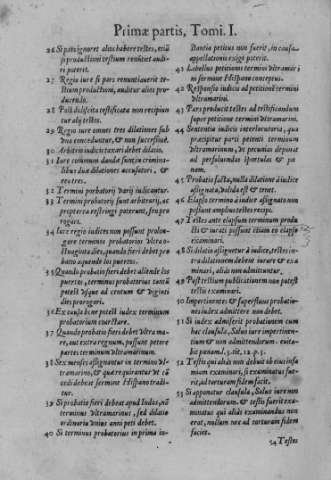 Primæ partis, Tomi. I.
26 Si pars ignoret alios habere testes, etiã
si productioni testium renũtiet audi-
ri poterit.
27 Regio iure si pars renuntiauerit te-
stium productioni, auditur alios pro-
ducendo.
28 Post didiscita testificata non recipiun
tur alij testes.
29 Regio iure omnes tres dilationes sub
vno conceduntur, & non successiuè.
30 Arbitrio iudicis taxari debet dilatio.
31 Iure communi dandæ sunt in crimina-
libus duæ dilationes accusatori, &
reo tres.
32 Termini probatorij varij indicantur.
33 Termini probatorij sunt arbitrarij, ac
propterea restringi poterunt, seu pro
rogari.
34 Iure regio iudices non possunt prolon-
gare terminos probatorios vltra o-
ctuaginta dies, quando fieri debet pro
batio aquende los puertos.
35 Quando probatio fieri debet allende los
puertos, terminus probatorius tantũ
potest vsque ad centum & viginti
dies prorogari.
36 Ex causa bene potest iudex terminum
probatorium coarctare.
37 Quando probatio fieri debet vltra ma-
re, aut extra regnum, possunt petere
partes terminum vltramarinum.
38 Sex menses assignantur in termino vl-
tramarino, & quæ requirantur vt cõ
cedi debeat sermone Hispano tradi-
tur.
39 Si probatio fieri debeat apud Indos, nõ
terminus vltramarinus, sed dilatio
ordinaria vnius anni peti debet.
40 Si terminus probatorius in prima in-
stantia petitus non fuerit, in causa
appellationis exigi poterit.
41 Libellus petitionis termini vltramari
ni sermone Hispano conceptus.
42 Responsio iudicis ad petitionẽ termini
vltramarini.
43 Pars producit testes ad iustificandum
super petitione termini vltramarini.
44 Sententia iudicis interlocutoria, qua
præcipitur parti petenti terminum
vltramarinum, vt pecunias deponat
ad persoluendas sportulas & pœ-
nam.
45 Probatio facta, nulla dilatione à iudice
assignata, valida est & tenet.
46 Elapso termino à iudice assignato non
possunt amplius testes recipi.
47 Testes ante elapsum terminum produ
cti & iurati possunt etiam eo elapso
examinari.
48 Si dilatio assignetur à iudice, testes in-
tra dilationem debent iurare & exa
minari, alias non admittuntur.
49 Post testium publicationem non potest
testis examinari.
50 Impertinentes & superfluas probatio-
nes iudex admittere non debet.
51 Si iudex admiserit probationem cum
hac clausula, Saluo iure impertinen-
tium & non admittendorum. euita-
bis pœnam l. 3. tit. 12. p. 3.
52 Testis qui aliàs non debuit ob eius infa
miam examinari, si examinatus fue-
rit, ad torturam fidem facit.
53 Si apponatur clausula, Saluo iure non
admittendorum. & testis fuerit exa-
minatus qui aliàs examinandus non
erat, nullam nec ad torturam fidem
faciet.
54 Testes